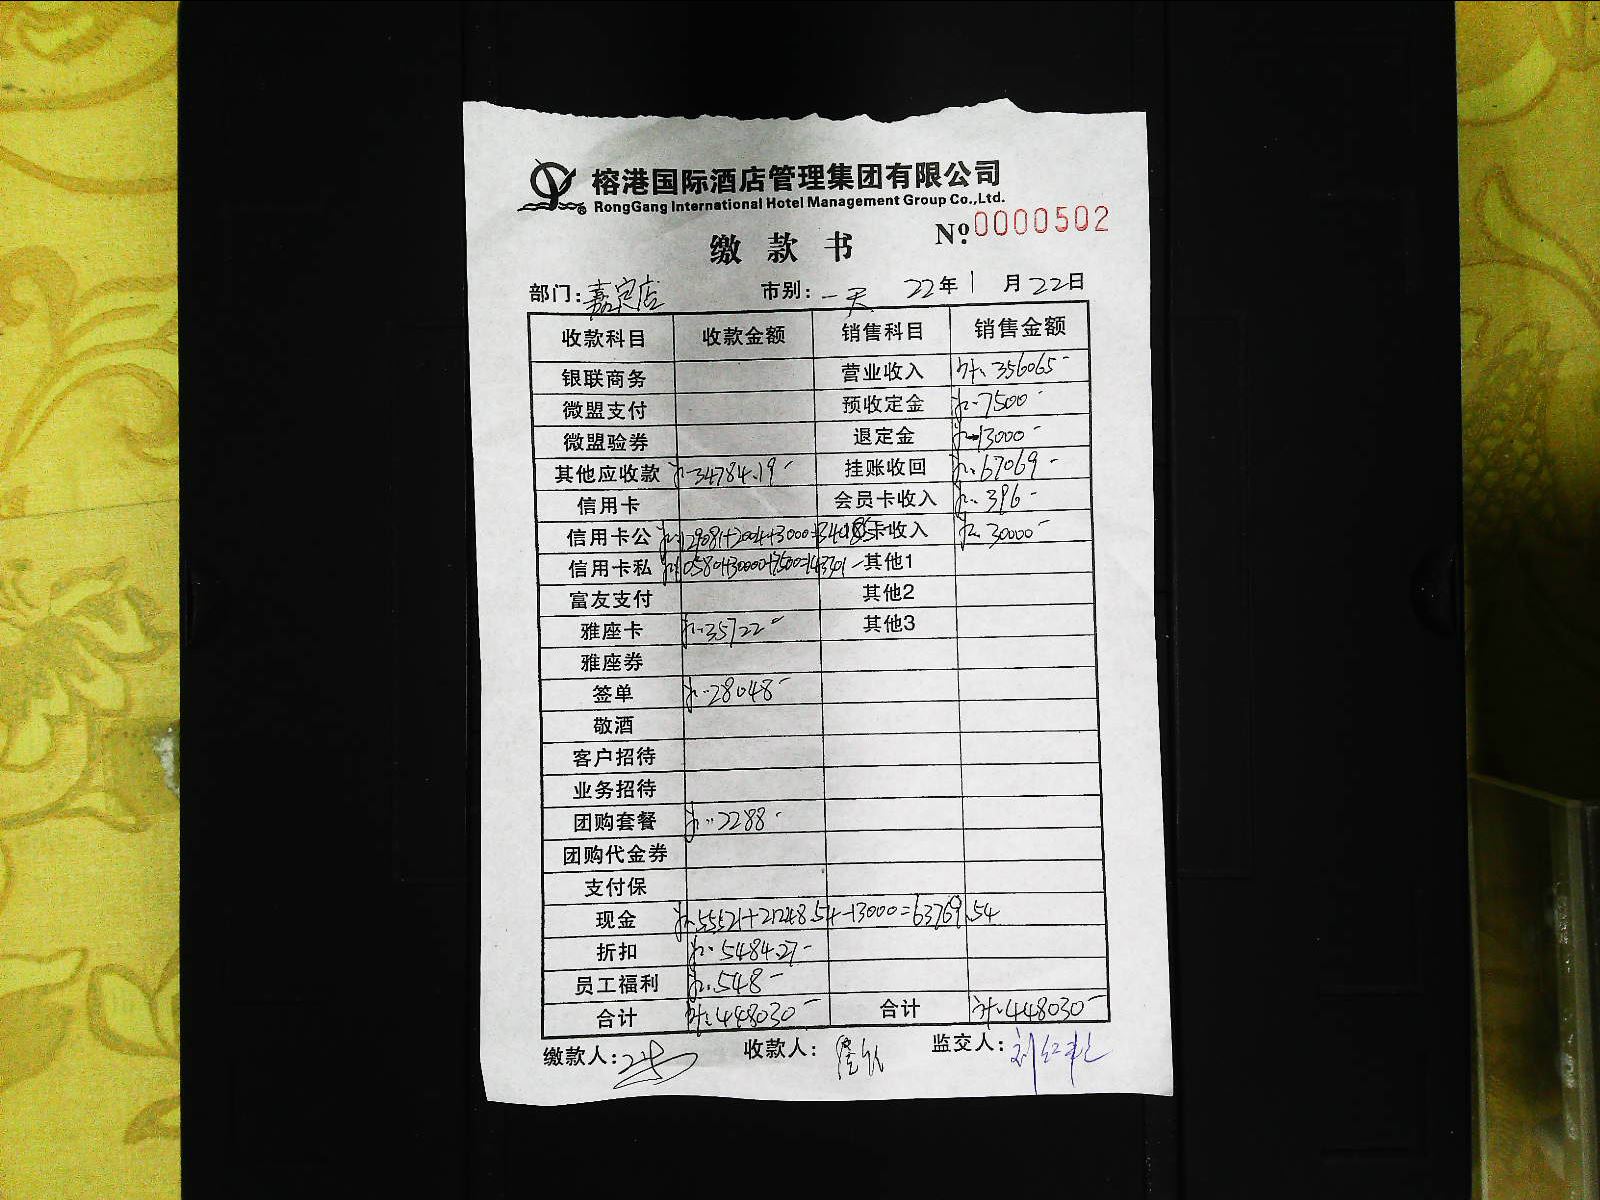 榕港国际酒店管理集团有限公司
RongGang International Hotel Management Group Co.,Ltd.
缴款书 №.0000502
部门:嘉定店 市别:一天 22年1月22日
收款科目 收款金额 销售科目 销售金额
银联商务 营业收入 356065-
微盟支付 预收定金 7500-
微盟验券 退定金 -13000-
其他应收款 34784.19- 挂账收回 67069-
信用卡 会员卡收入 396-
信用卡公 卡收入 30000-
信用卡私 其他1
富友支付 其他2
雅座卡 35722- 其他3
雅座券
签单 28048-
敬酒
客户招待
业务招待
团购套餐 2288-
团购代金券
支付保
现金 55521+21248.54-13000=63769.54
折扣 5484.27-
员工福利 548-
合计 448030- 合计 448030-
缴款人: 收款人: 监交人: